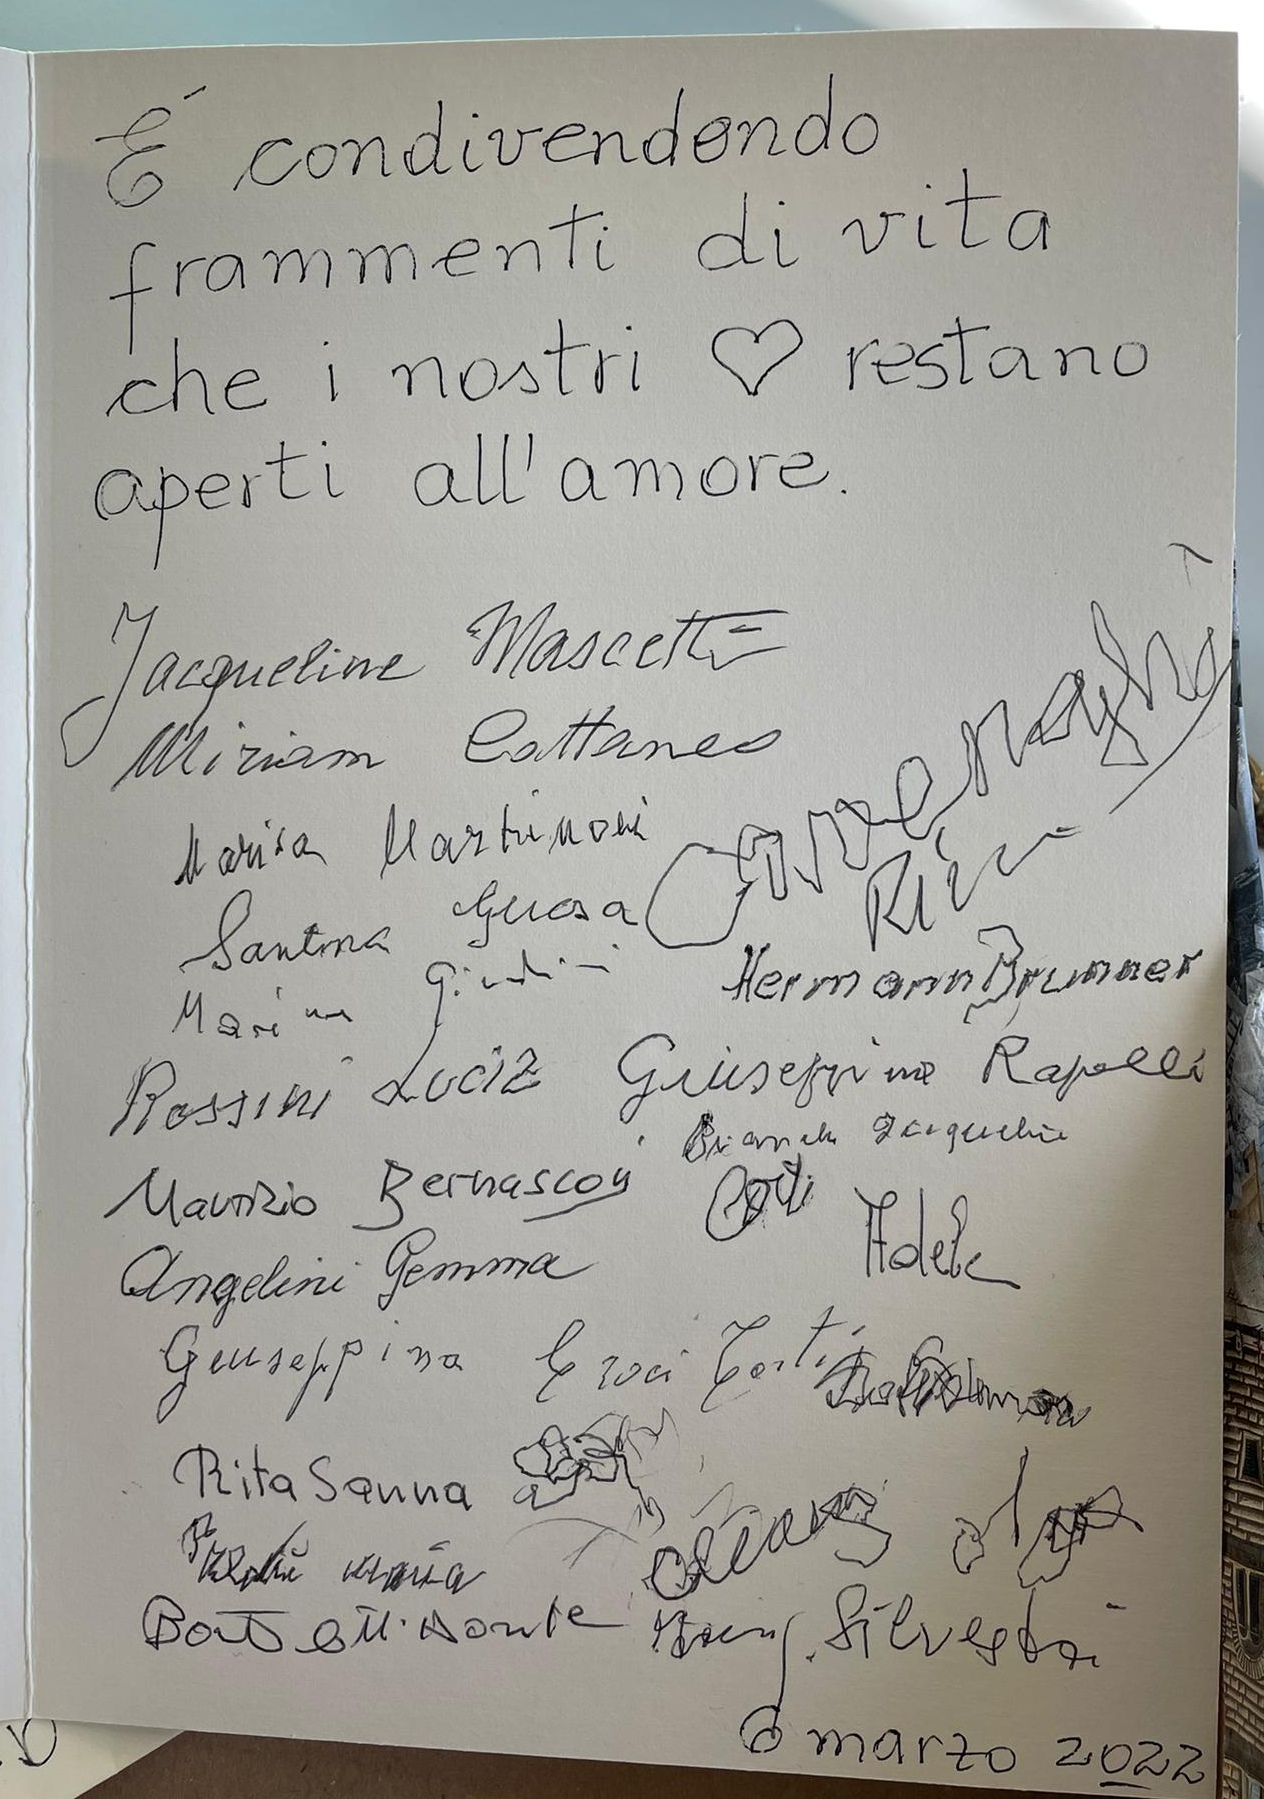 É condivendendo
frammenti di vita
che i nostri ♡ restano
aperti all'amore.
Jacqueline Mascetti
Miriam Cattaneo
Marisa Martinoni
Cavenaghi
Rina
Santina Guosa
Marina
Hermann Brunner
Rossini Lucia
Giuseppina Rapelli
Jacqueline
Maurizio Bernasconi
Corti Adele
Angelini Gemma
Giuseppina Croci Torti
Rita Sanna
Maria
Silvestri
6 marzo 2022